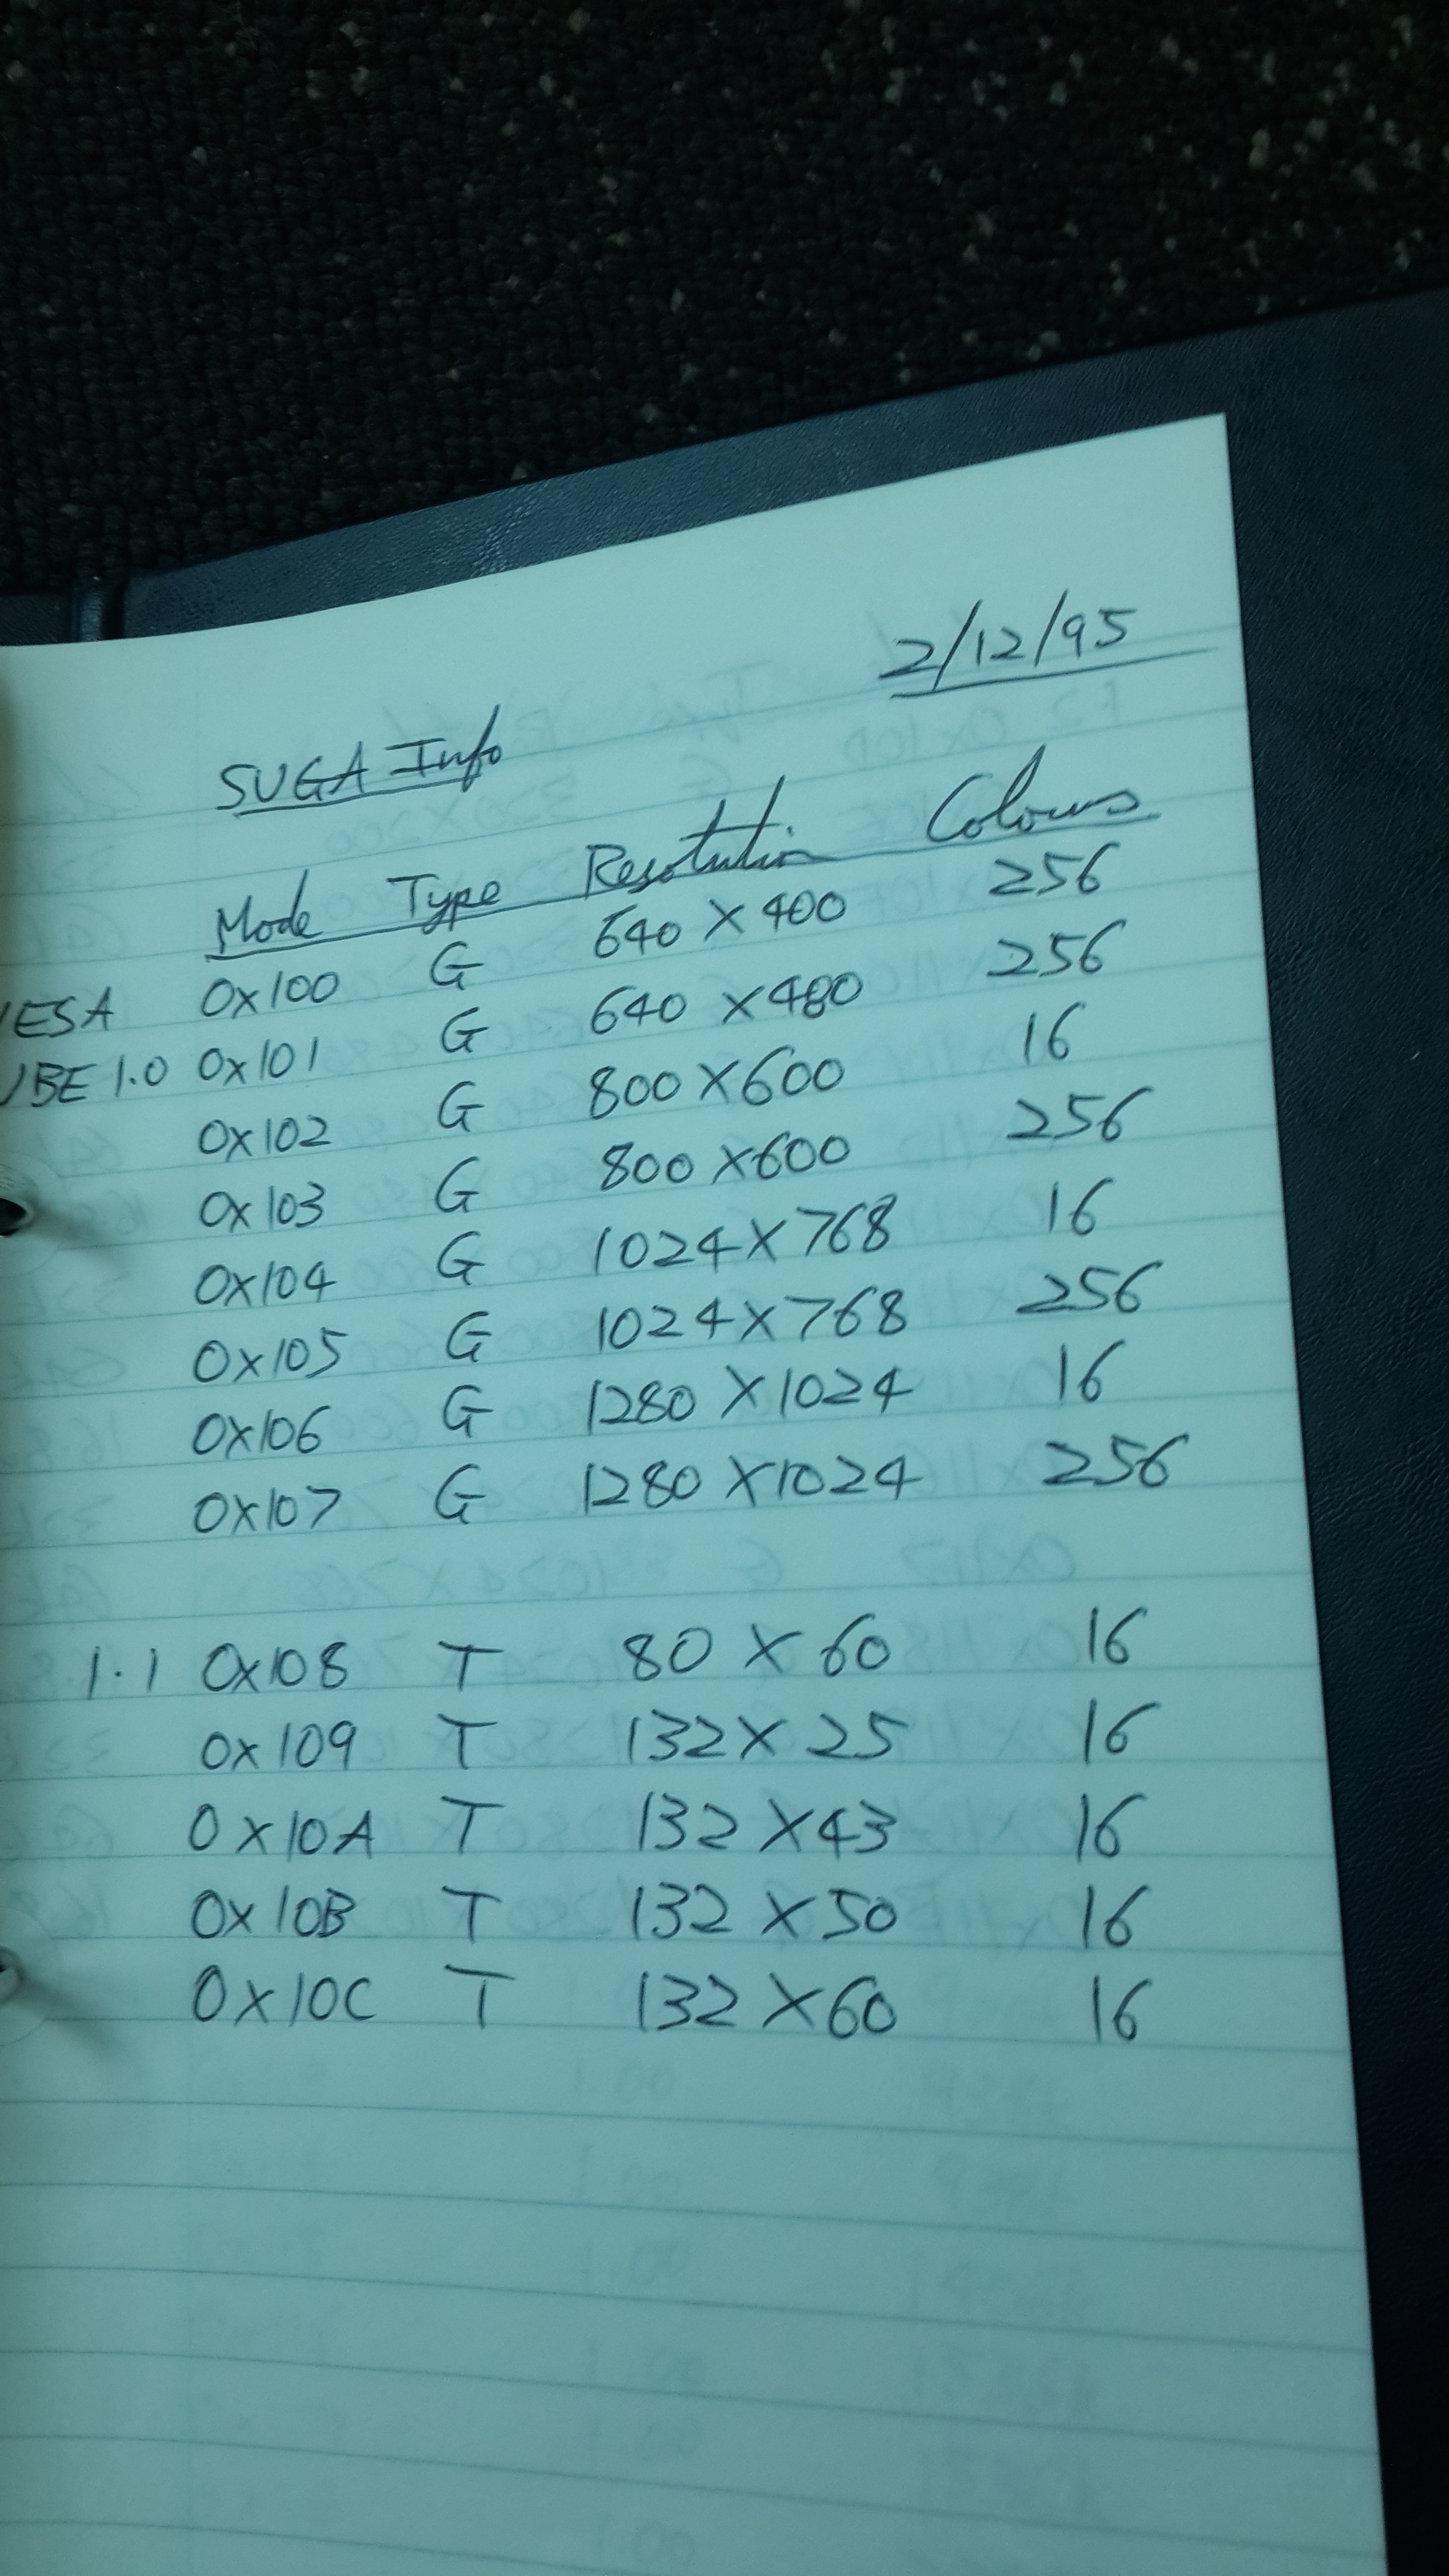 2/12/95
SVGA Info
Mode Type Resolution Colours
VESA 0x100 G 640 X 400 256
VBE 1.0 0x101 G 640 X 480 256
0x102 G 800 X 600 16
0x103 G 800 X 600 256
0x104 G 1024 X 768 16
0x105 G 1024 X 768 256
0x106 G 1280 X 1024 16
0x107 G 1280 X 1024 256
1.1 0x108 T 80 X 60 16
0x109 T 132 X 25 16
0x10A T 132 X 43 16
0x10B T 132 X 50 16
0x10C T 132 X 60 16